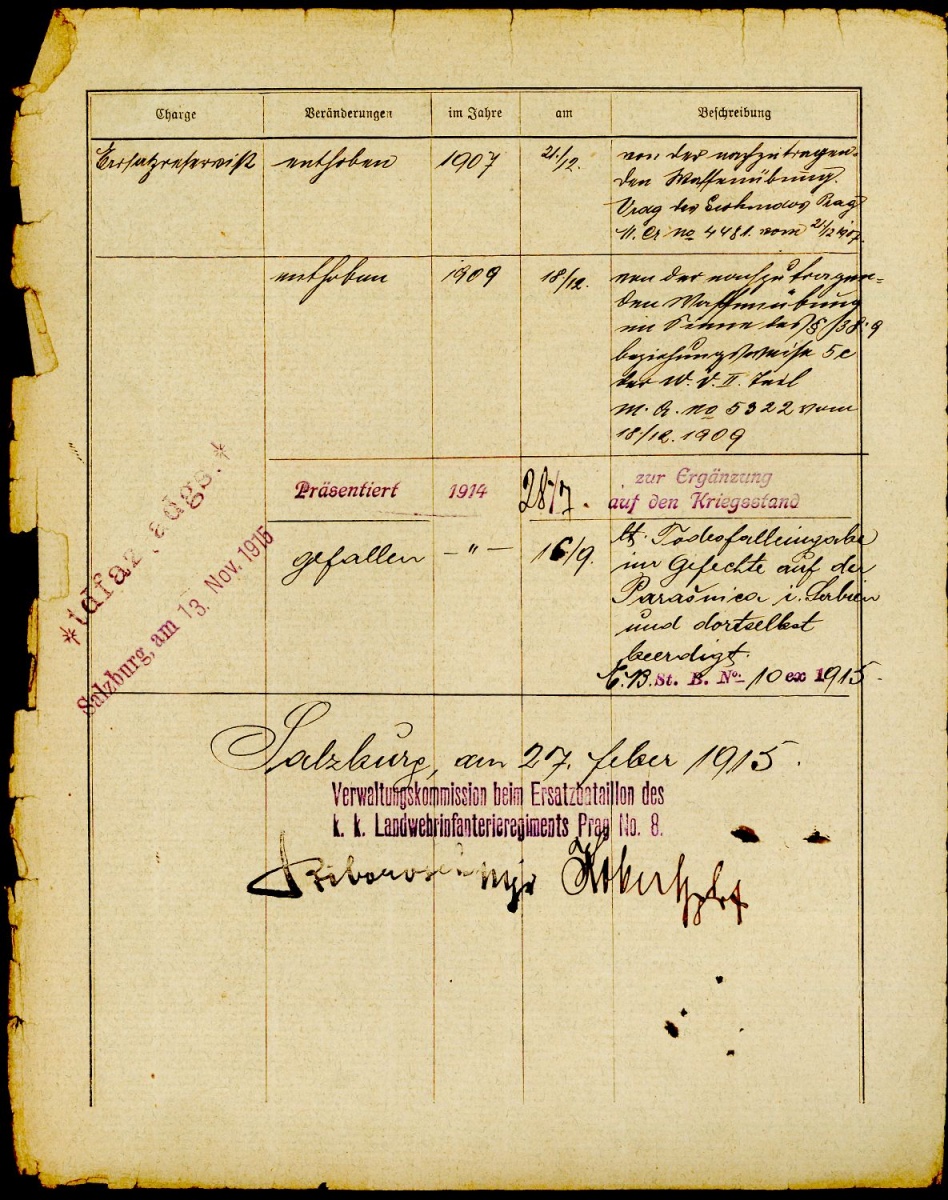 Charge Veränderungen im Jahre am Beschreibung
Ersatzreservist enthoben 1907 21./12. von der nachzutragen-
den Waffenübung.
Prag
M. A. No 4481. vom 21/12 1907.
enthoben 1909 18/12. von der nachzutragen-
den Waffenübung
im Sinne des §
beziehungsweise 5c
der W. V. II. Teil
M. A. No 5322 vom
18./12. 1909
Präsentiert 1914 28/7. zur Ergänzung
auf den Kriegsstand
gefallen — " — 16/9. lt. Todesfalleingabe
im Gefechte auf der
Parašnica i. Serbien
und dortselbst
beerdigt.
E. B. St. B. No. 10 ex 1915
Salzburg, am 13. Nov. 1915
Salzburg, am 27. feber 1915.
Verwaltungskommission beim Ersatzbataillon des
k. k. Landwehrinfanterieregiments Prag No. 8.